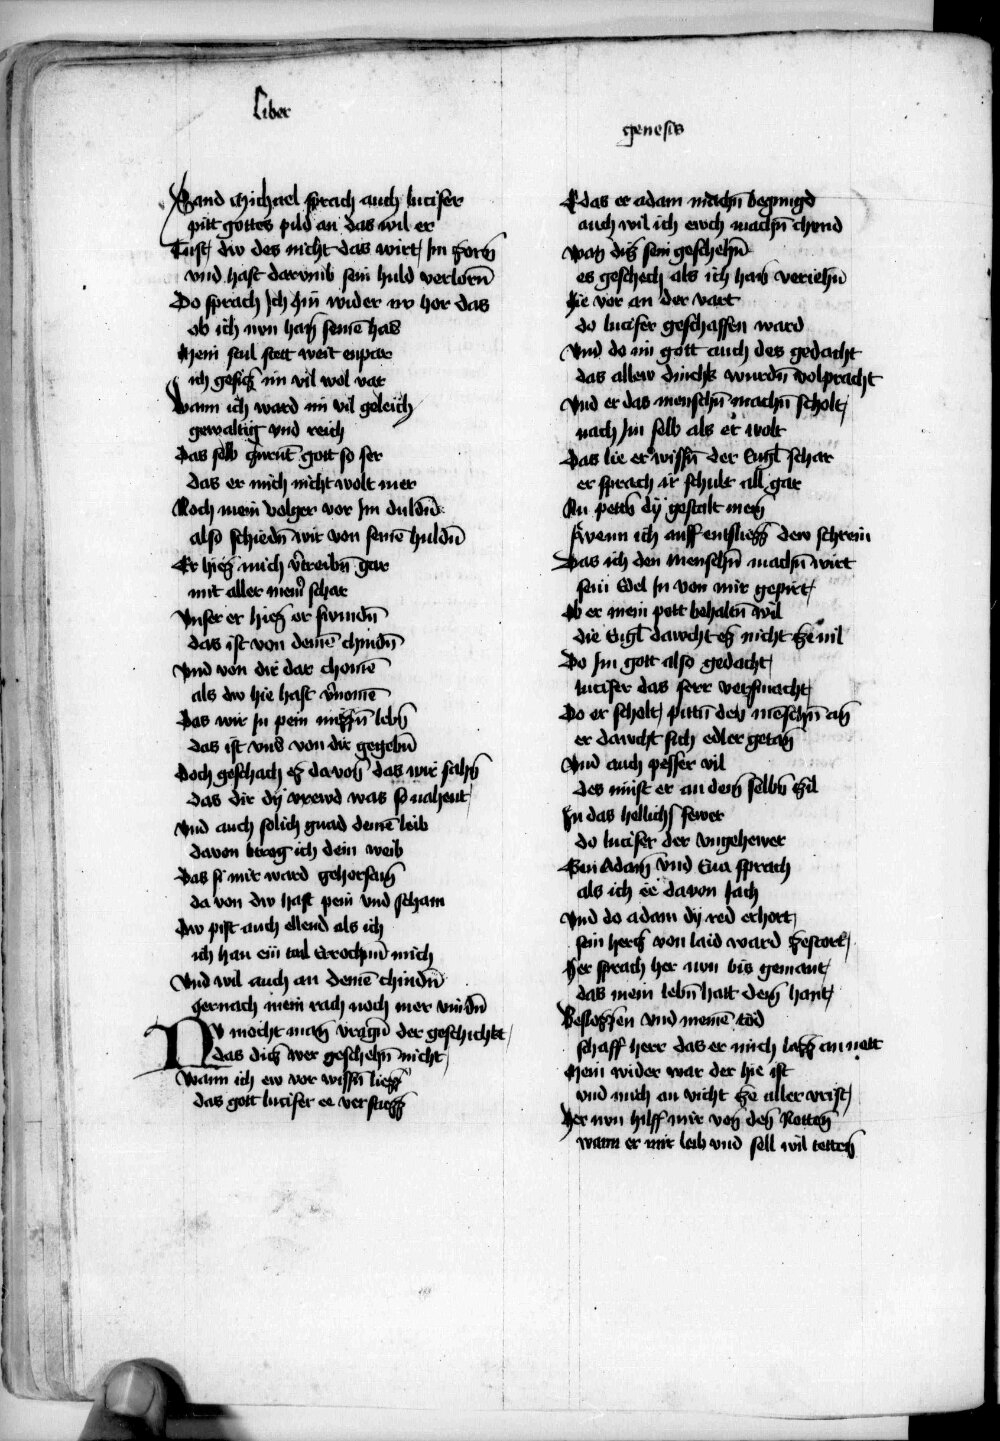 Liber
genesis
Sand Michael sprach auch lucifer
pitt gottes pild an das wil er
Tust dw des nicht das wirt Im zorn̄
vnd hast darvmb sein huld verlorn̄
Do sprach Ich hin wider nv hor das
ob ich nvn han̄ seinē has
Mein stul stett weit enpar
ich gesicz im vil wol var
Wann ich ward im vil geleich
gewaltig vnd reich
Das selb zurnt gott so ser
das er mich nicht wolt mer
Noch mein volger vor Im duldn̄
also schiedn̄ wir von seinē huldn̄
Er hiez mich v̄treibn̄ gar
mit aller mein̄ schar
Vnser er hiez er swindn̄
das ist von deinē chindn̄
Vnd von dir dar chomē
als dw hie hast v̄nomē
Das wir In pein mŭzzn̄ lebn̄
das ist vns von dir gegebn̄
Doch geschach ez davon̄ das wir sahn̄
das dir dÿ vrewd was so nahent
Vnd auch solich gnad deinē leib
davon betrog ich dein weib
Das si mir ward gehorsam̄
da von dw hast pein vnd scham
Dw pist auch ellend als ich
ich han ein tail errochn̄ mich
Vnd wil auch an deinē chindn̄
hernach mein rach noch mer vindn̄
NV mocht man̄ vragn̄ der geschicht
das dicz wer geschehn̄ nicht
Wann ich ew vor wissn̄ liezz
das gott lucifer ee verstiezz
E das er adam machn̄ begungd
auch wil ich ewch machn̄ chund
Wan̄ dicz sein geschehn̄
es geschech als ich han̄ veriehn̄
Hie vor an der vart
do lucifer geschaffen ward
Vnd do im gott auch des gedacht
das allew dinchk wurdn̄ volpracht
Vnd er das menschn̄ machn̄ scholt
nach Im selb als er wolt
Das lie er wissn̄ der Engl schar
er sprach ir schult all gar
An pettn̄ dÿ gestalt mein̄
swenn ich auff entsliezz dew schrein
Das ich den menschn̄ machn̄ wirt
sein Edel In von mir gepirt
Ob er mein pott behaltn̄ wil
die Engl dawcht ez nicht ze vil
Do Im gott also gedacht
lucifer das serr versmacht
Do er scholt pittn̄ den̄ mēschn̄ an̄
er dawcht sich edler getan̄
Vnd auch pesser vil
des mŭst er an dem̄ selbn̄ zil
In das hellisch fewer
do lucifer der vngehewer
Gein Adam̄ vnd Eua sprach
als ich ee davon Iach
Vnd do adam dÿ red erhort
sein hercz von laid ward zestort
Her sprach her nvn bis gemant
das mein lebn̄ hatt dein̄ hant
Beslozzen vnd meinē tod
schaff herr das er mich lazz an nott
Mein wider war der hie ist
vnd mich an vicht ze aller vrist
Her nvn hilff mir von̄ den̄ Notten̄
wann er mir leib vnd sell wil tetten̄